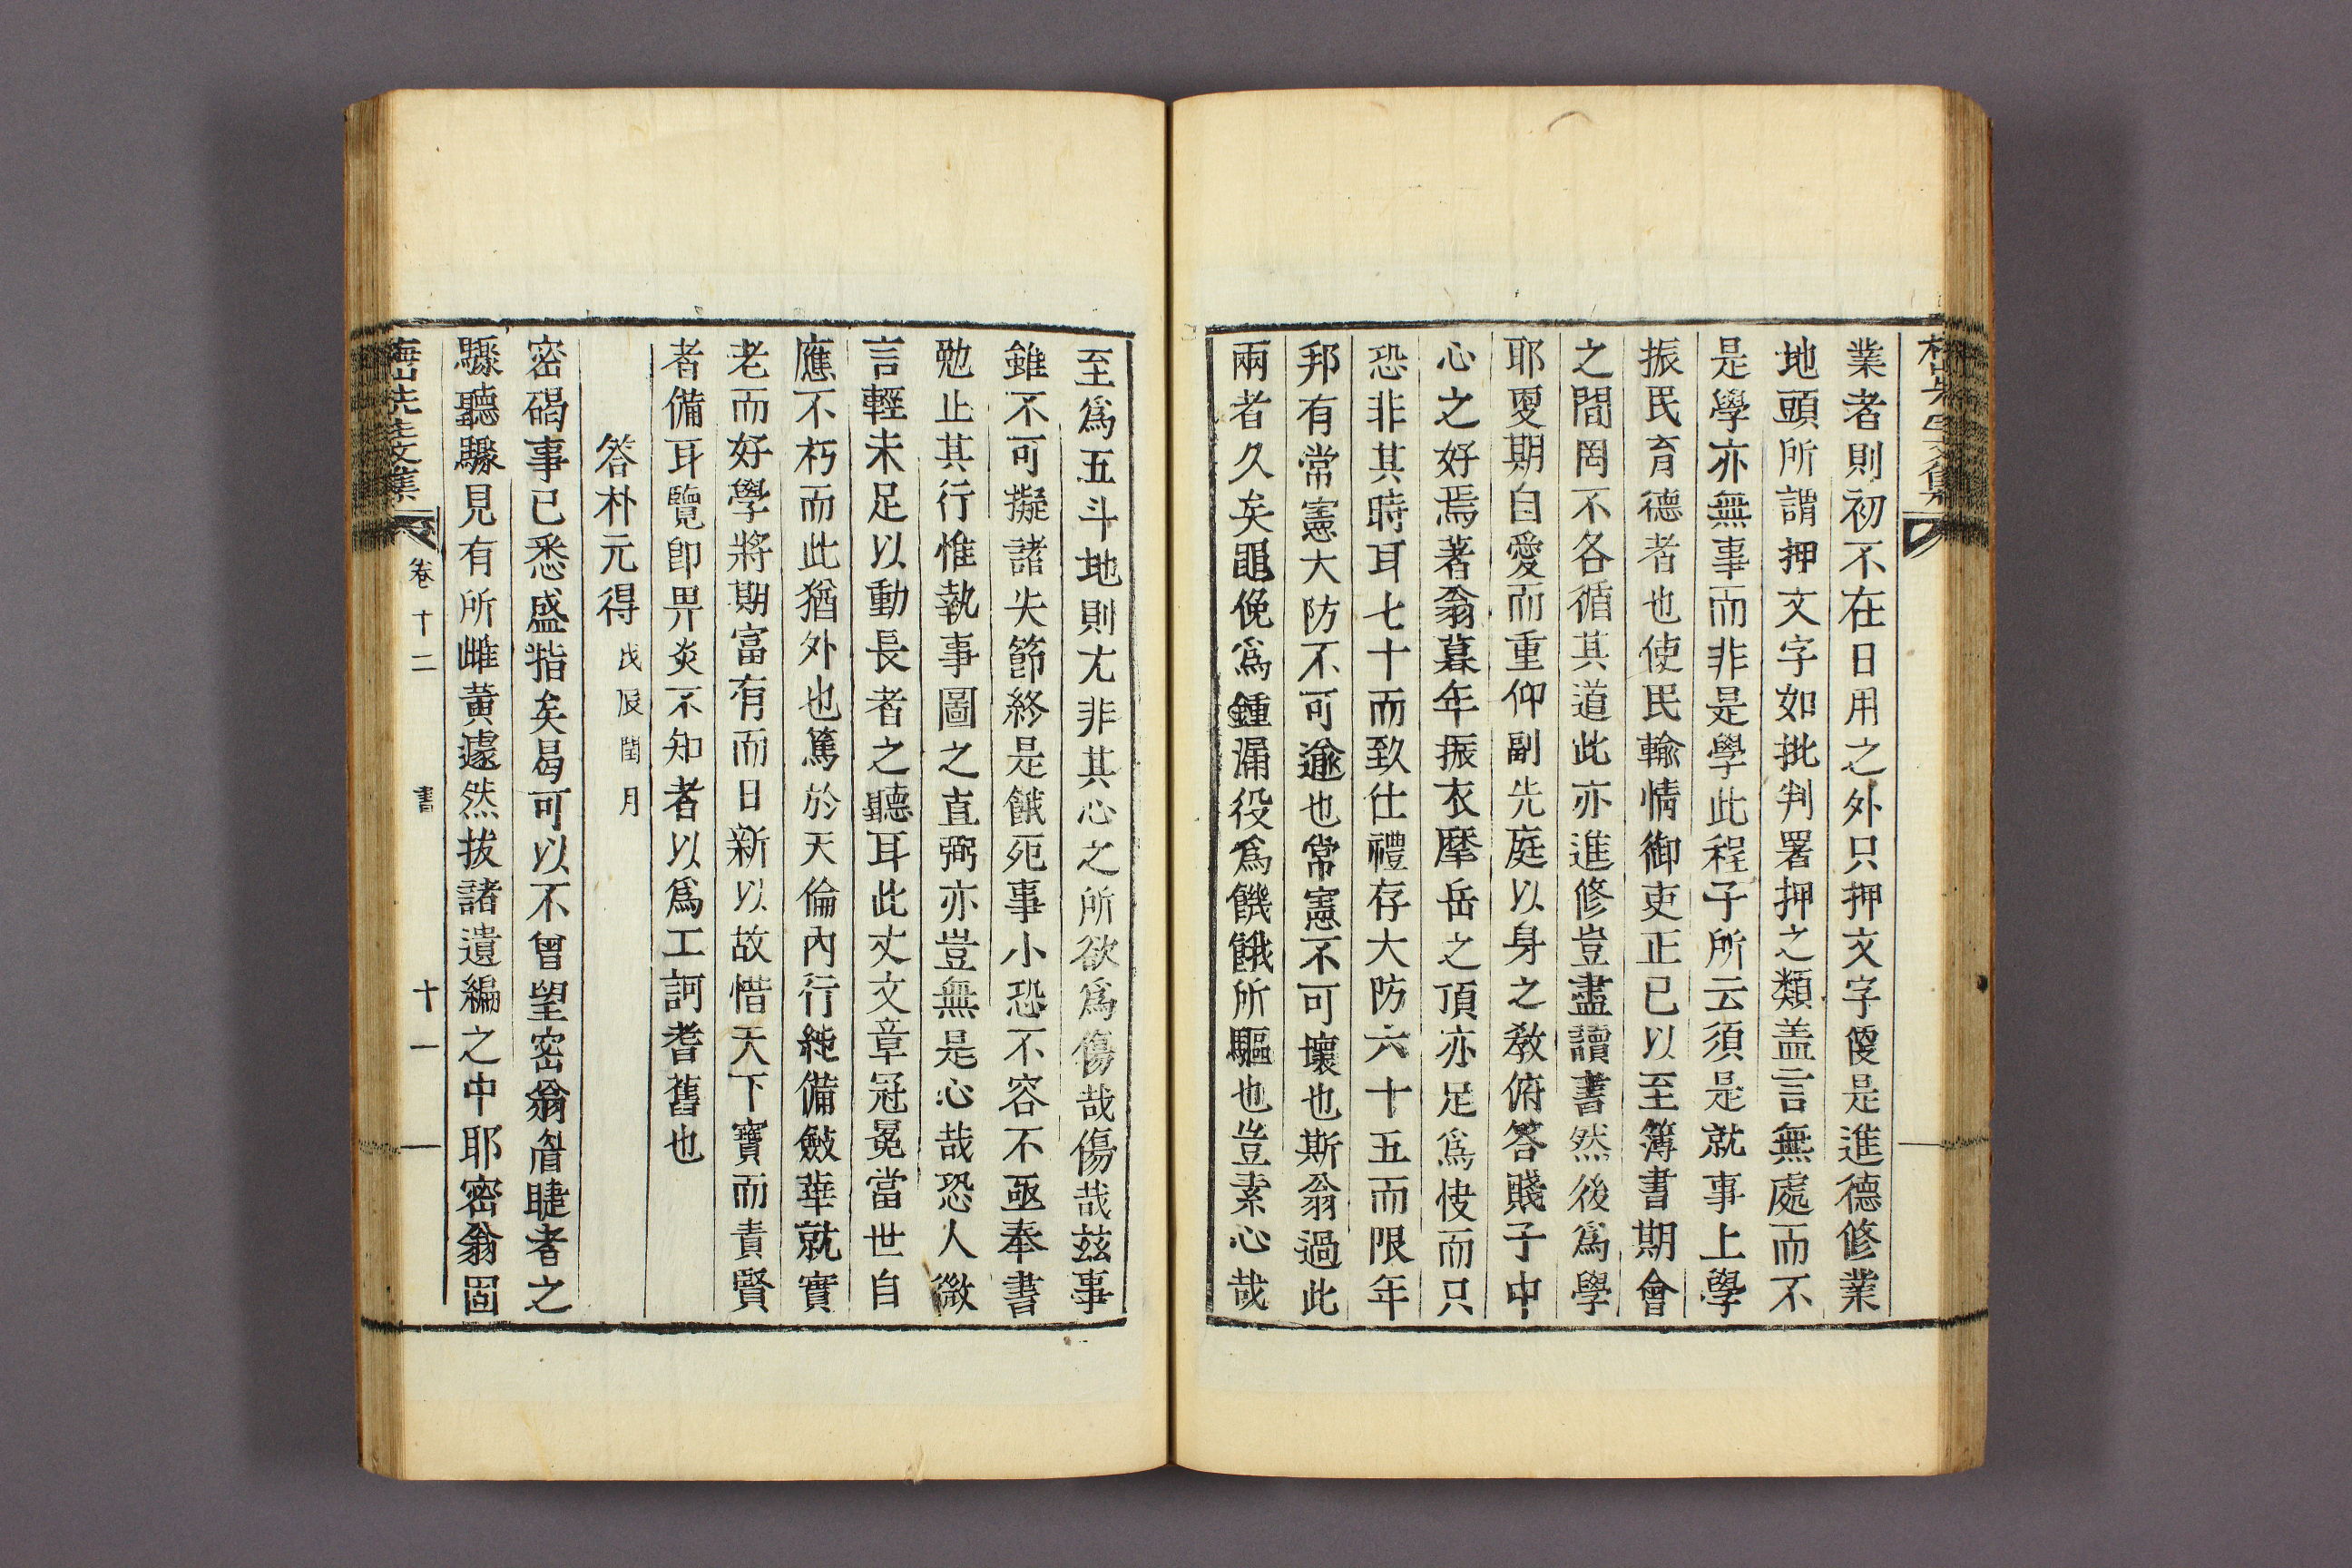 梅山先生文集
業者則初不在日用之外只押文字便是進德修業
地頭所謂押文字如批判署押之類盖言無處而不
是學亦無事而非是學此程子所云須是就事上學
振民育德者也使民輸情御吏正已以至簿書期會
之間罔不各循其道此亦進修豈盡讀書然後爲學
耶更期自愛而重仰副先庭以身之敎俯答賤子中
心之好焉著翁暮年振衣摩岳之頂亦足爲快而只
恐非其時耳七十而致仕禮存大防六十五而限年
邦有常憲大防不可逾也常憲不可壞也斯翁過此
兩者久矣黽俛爲鍾漏役爲饑餓所驅也豈素心哉
至爲五斗地則尤非其心之所欲爲傷哉傷哉玆事
雖不可擬諸失節終是餓死事小恐不容不亟奉書
勉止其行惟執事圖之直弼亦豈無是心哉恐人微
言輕未足以動長者之聽耳此丈文章冠冕當世自
應不朽而此猶外也篤於天倫內行純備斂華就實
老而好學將期富有而日新以故惜天下寶而責賢
者備耳覽卽畀炎不知者以爲工訶耆舊也
答朴元得 戊辰閏月
密碣事已悉盛指矣曷可以不曾望密翁眉睫者之
驟聽驟見有所雌黃遽然拔諸遺編之中耶密翁固
梅山先生文集 卷十二 書 十一